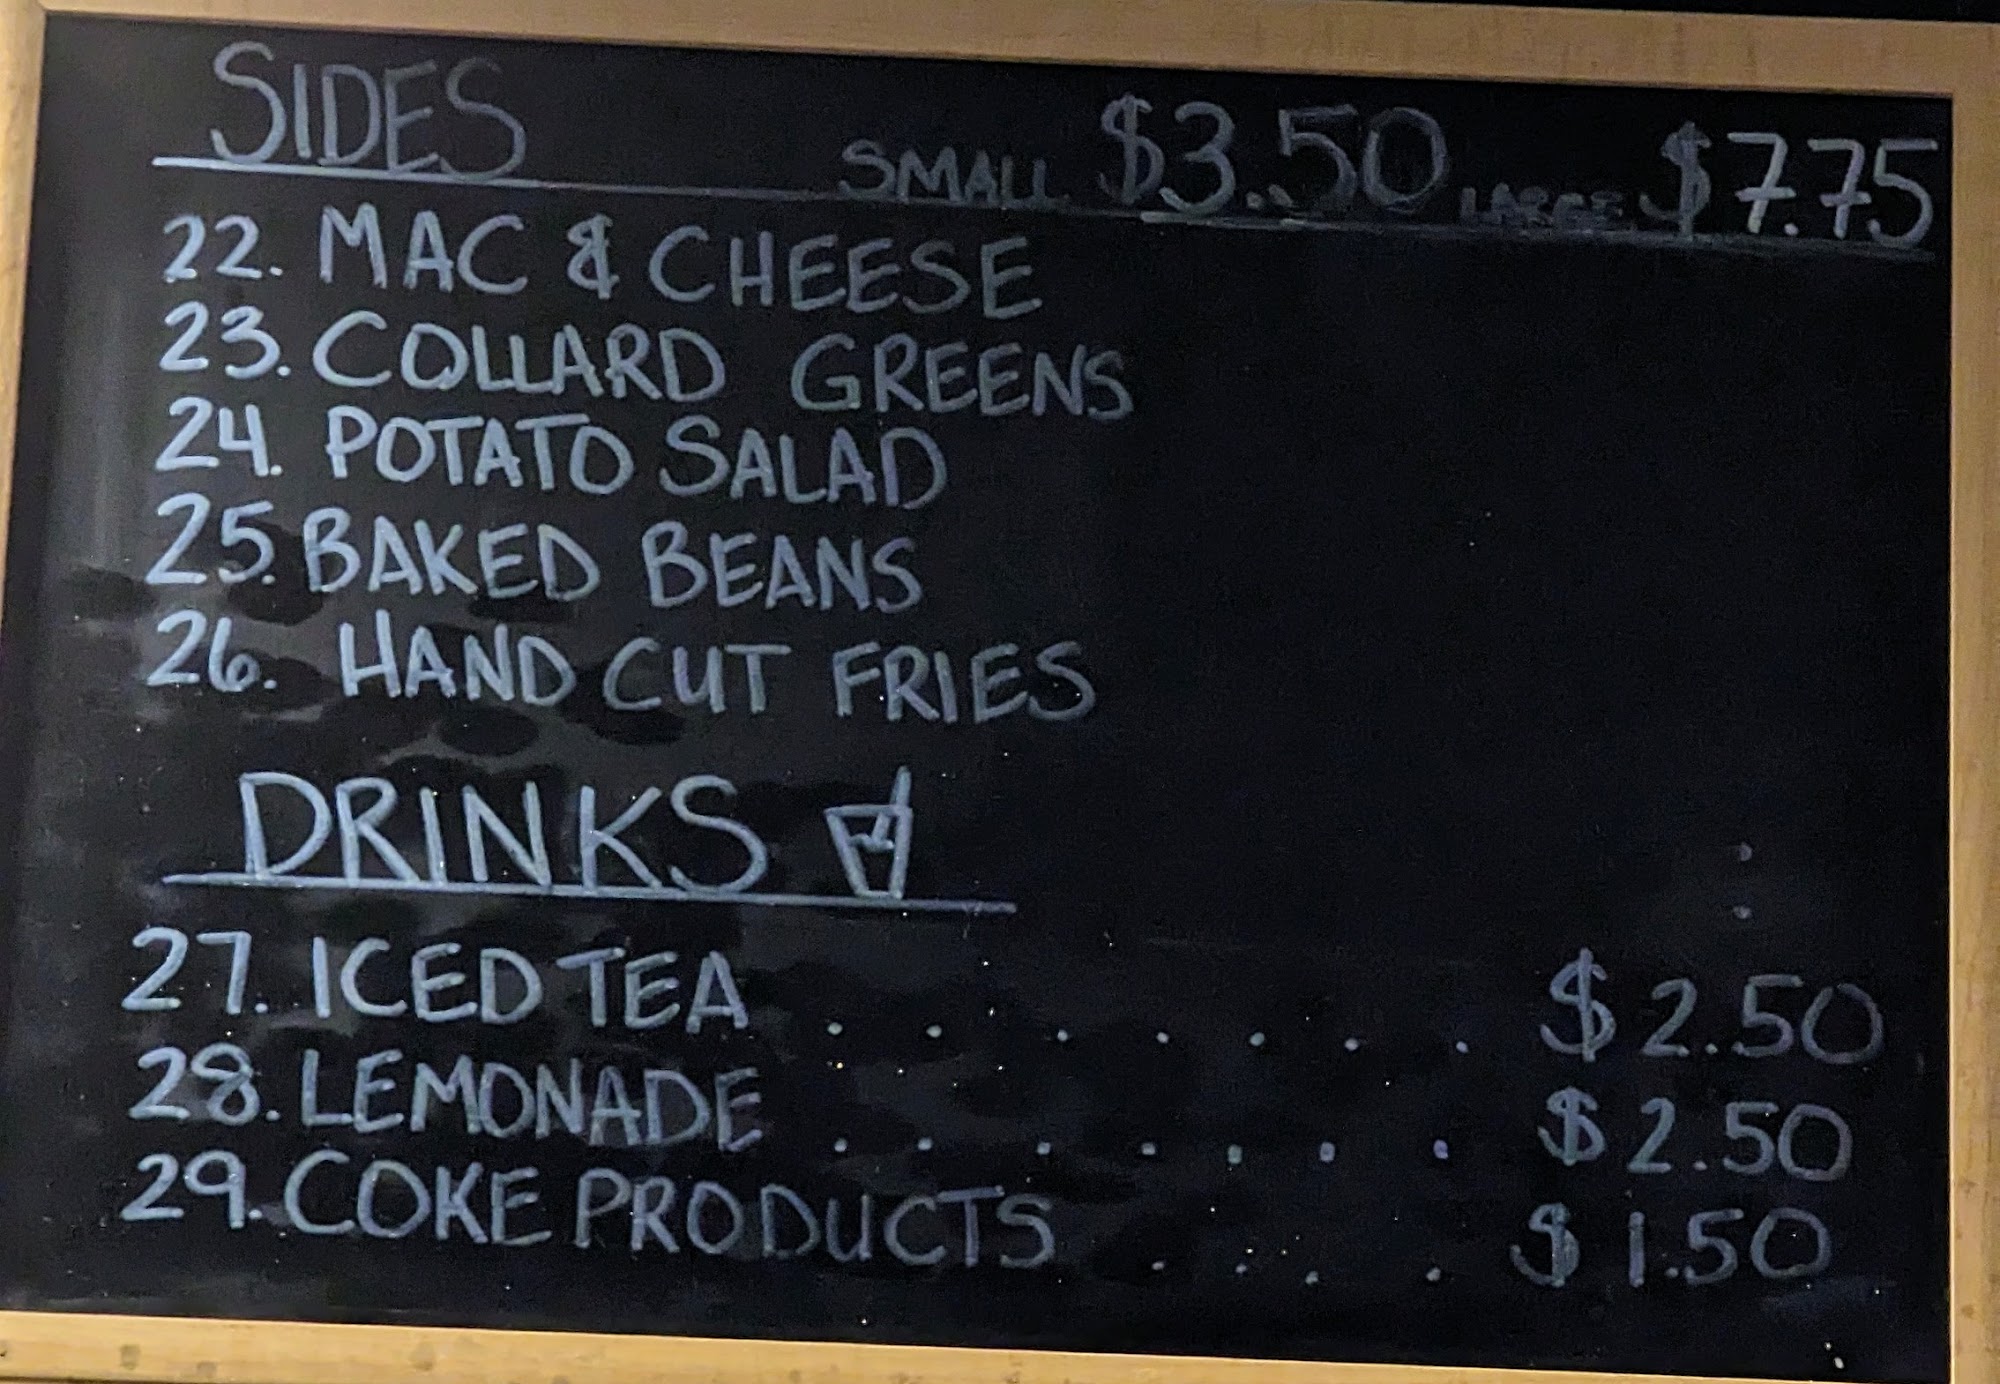 SIDES SMALL $3.50 LARGE $7.75
22. MAC & CHEESE
23. COLLARD GREENS
24. POTATO SALAD
25. BAKED BEANS
26. HAND CUT FRIES
DRINKS
27. ICED TEA . . . . . . . $2.50
28. LEMONADE . . . . . . . $2.50
29. COKE PRODUCTS . . . . $1.50